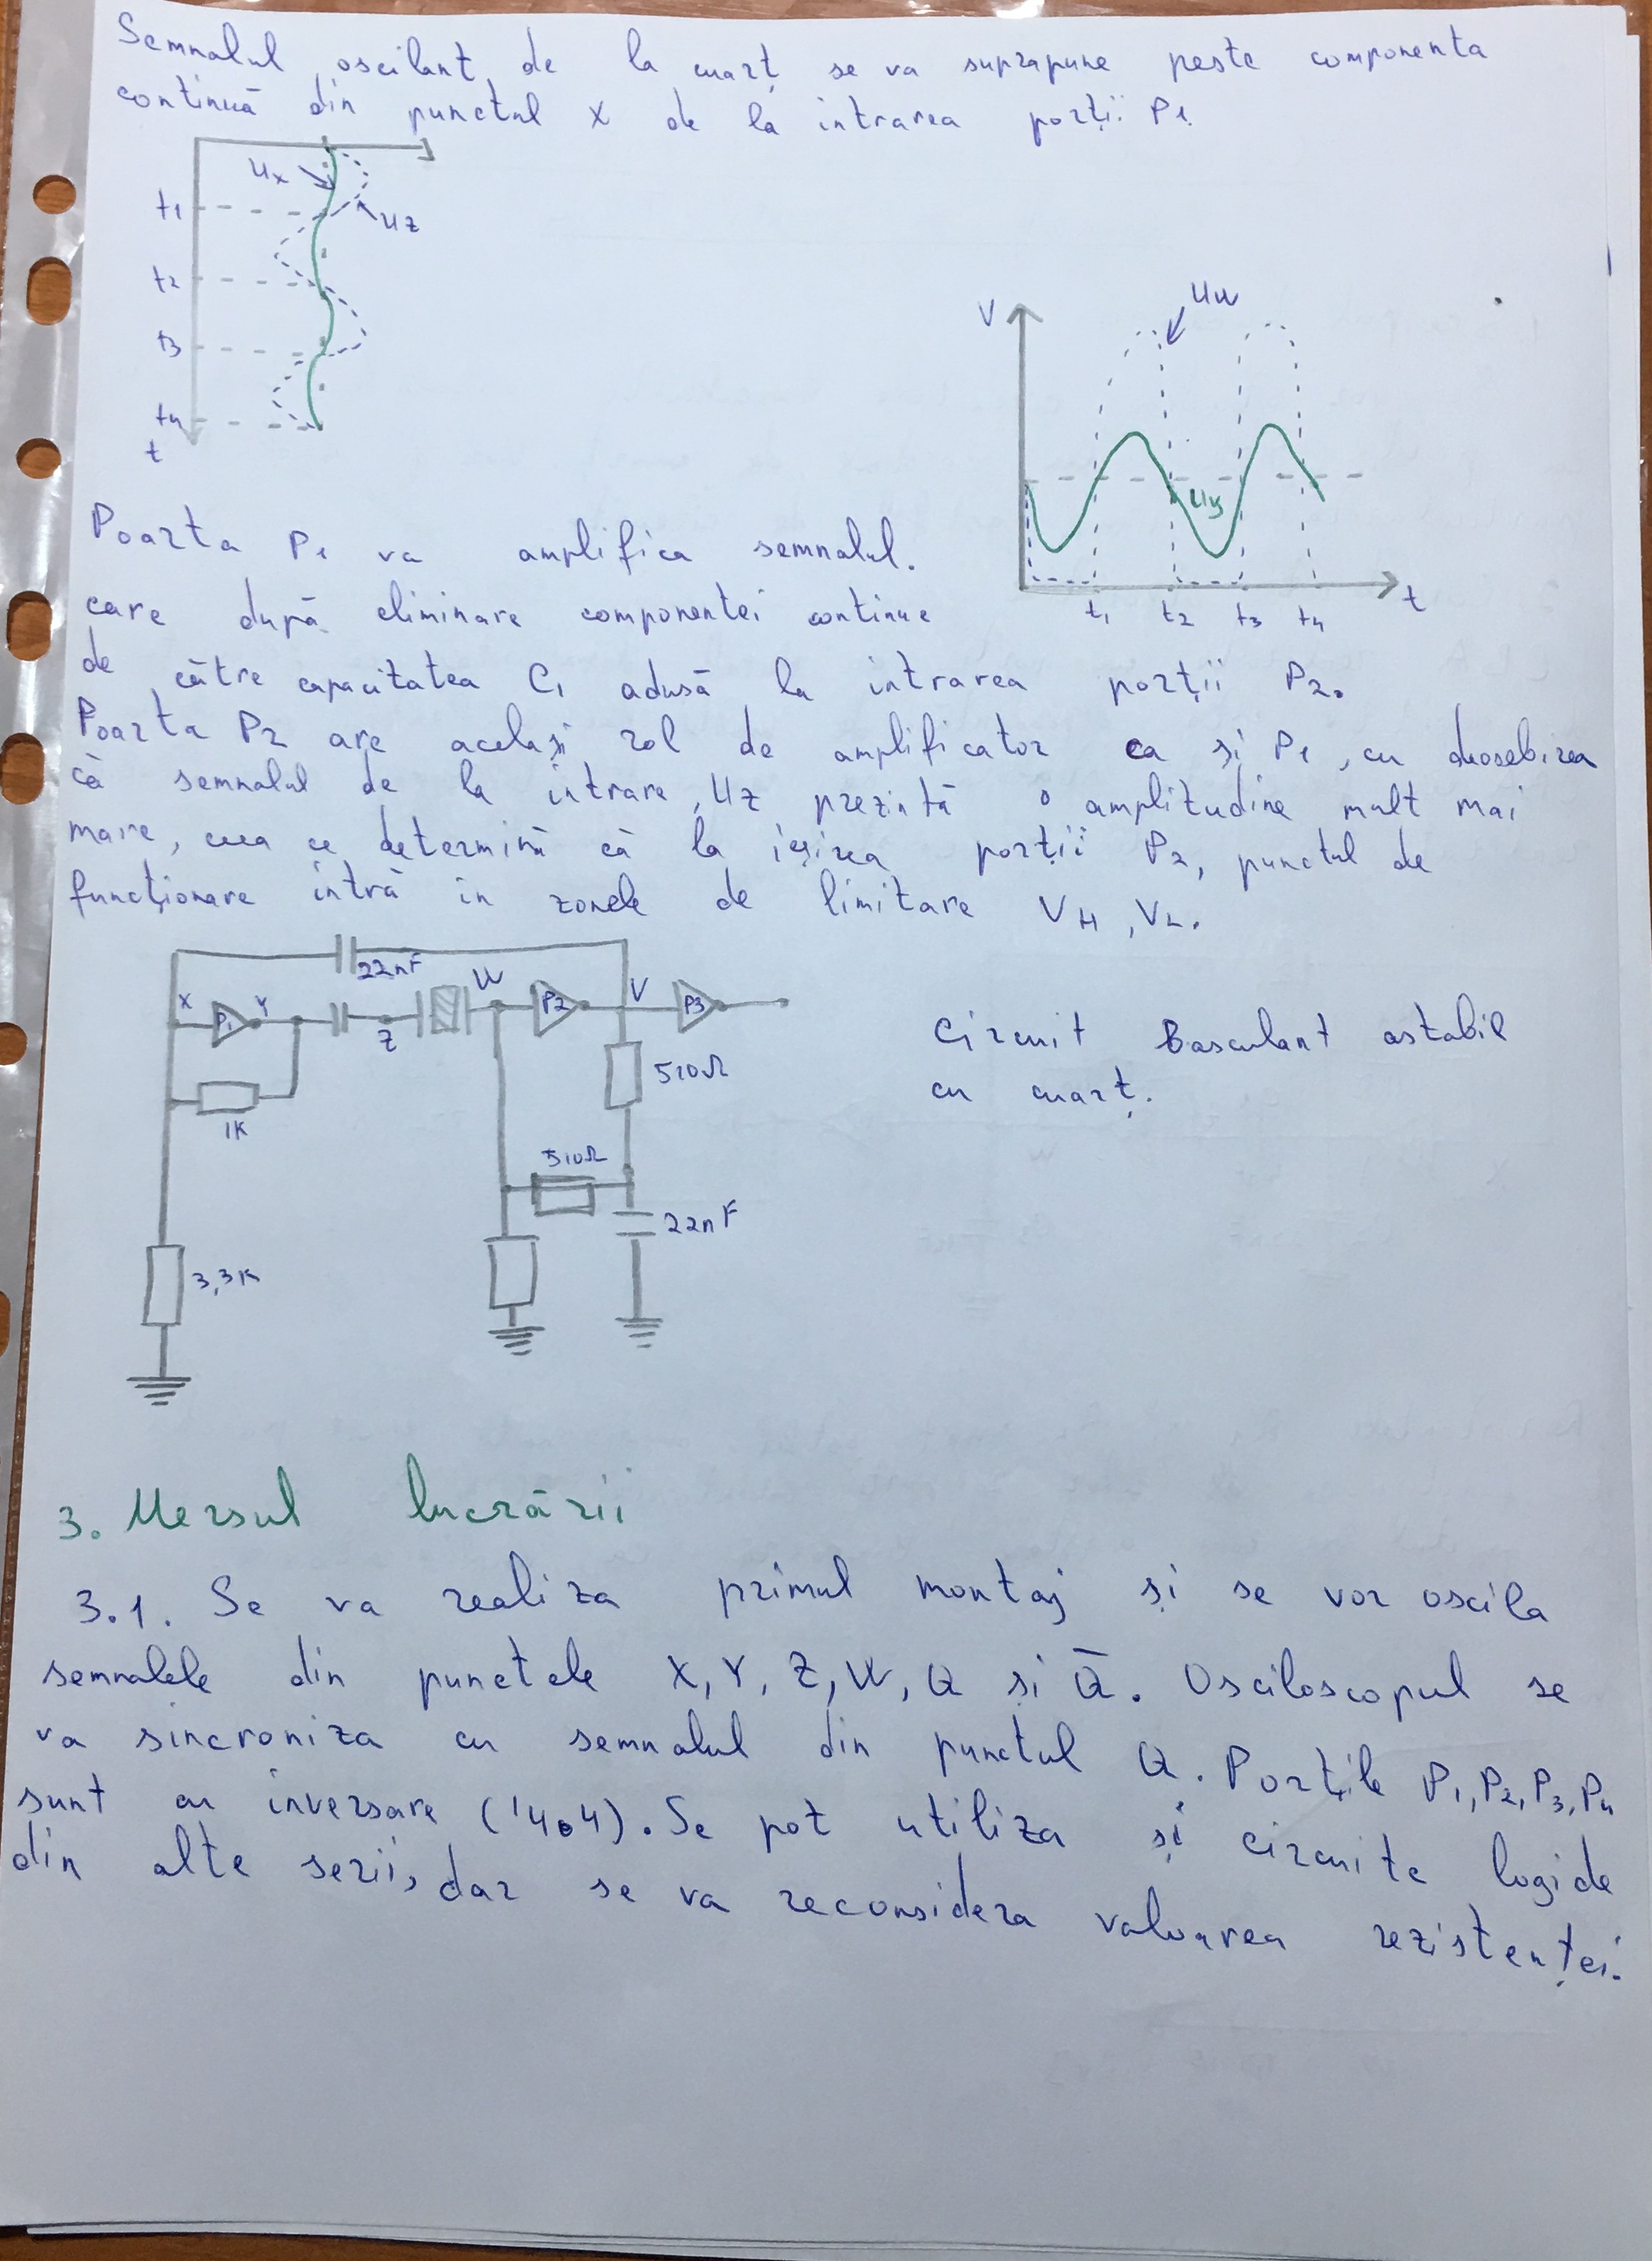 Semnalul oscilant de la cuarț se va suprapune peste componenta
continuă din punctul X de la intrarea porții P1
Ux
t1
Uz
t2
t3
t4
t
V
Uw
Uy
t1 t2 t3 t4
t
Poarta P1 va amplifica semnalul.
care după eliminare componentei continue
de către capacitatea C1 adusă la intrarea porții P2.
Poarta P2 are același rol de amplificator ca și P1, cu deosebirea
că semnalul de la intrare, Uz prezintă o amplitudine mult mai
mare, ceea ce determină că la ieșirea porții P2, punctul de
funcționare intră în zonele de limitare VH, VL.
22nF
X P1 Y Z W P2 V P3
510Ω
1K
510Ω
22nF
3,3K
Circuit Basculant astabil
cu cuarț.
3. Mersul lucrării
3.1. Se va realiza primul montaj și se vor oscila
semnalele din punctele X, Y, Z, W, Q și Q̄. Osciloscopul se
va sincroniza cu semnalul din punctul Q. Porțile P1, P2, P3, P4
sunt cu inversare ('404). Se pot utiliza și circuite logide
din alte serii, dar se va reconsidera valoarea rezistenței.